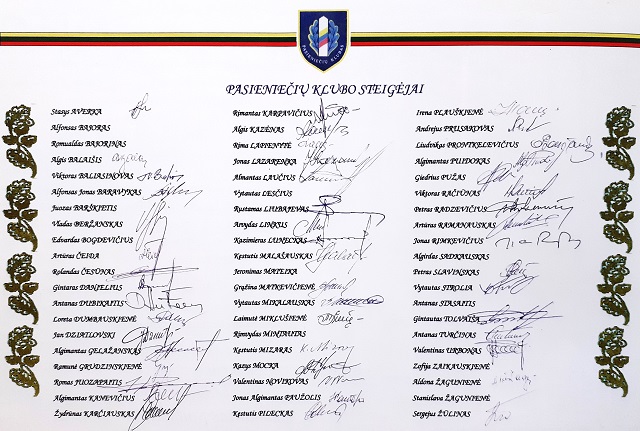 PASIENIEČIŲ KLUBAS
PASIENIEČIŲ KLUBO STEIGĖJAI
Stasys AVERKA
Alfonsas BAJORAS
Romualdas BAJORINAS
Algis BALAIŠIS
Viktoras BALIASINOVAS
Alfonsas Jonas BARAVYKAS
Juozas BARŠKIETIS
Vladas BERŽANSKAS
Edvardas BOGDEVIČIUS
Artūras ČEIDA
Rolandas ČESŪNAS
Gintaras DANIELIUS
Antanas DUBIKAITIS
Loreta DUMBAUSKIENĖ
Jan DZIATLOVSKI
Algimantas GELAŽANSKAS
Ramunė GRUDZINSKIENĖ
Romas JUOZAPAITIS
Algimantas KANEVIČIUS
Žydrūnas KARČIAUSKAS
Rimantas KARPAVIČIUS
Algis KAZĖNAS
Rima LAPIENYTĖ
Jonas LAZARENKA
Almantas LAUCIUS
Vytautas LESČIUS
Rustamas LIUBAJEVAS
Arvydas LINKUS
Kazimieras LUNECKAS
Kęstutis MALAŠAUSKAS
Jeronimas MATEIKA
Gražina MATKEVIČIENĖ
Vytautas MIKALAUSKAS
Laimutė MIKLUŠIENĖ
Rimvydas MINTAUTAS
Kęstutis MIZARAS
Kazys MOCKA
Valentinas NOVIKOVAS
Jonas Algimantas PAUŽOLIS
Kęstutis PILECKAS
Irena PLAUŠKIENĖ
Andrejus PRUSAKOVAS
Liudvikas PRONTKELEVIČIUS
Algimantas PUIDOKAS
Giedrius PUŽAS
Viktoras RAČIŪNAS
Petras RADZEVIČIUS
Artūras RAMANAUSKAS
Jonas RIMKEVIČIUS
Algirdas SADKAUSKAS
Petras SLAVINSKAS
Vytautas STROLIA
Antanas STASAITIS
Gintautas TOLVAIŠA
Antanas TURČINAS
Valentinas URBONAS
Zofija ZAIKAUSKIENĖ
Aldona ŽAGUNIENĖ
Stanislava ŽAGUNIENĖ
Sergejus ŽŪLINAS